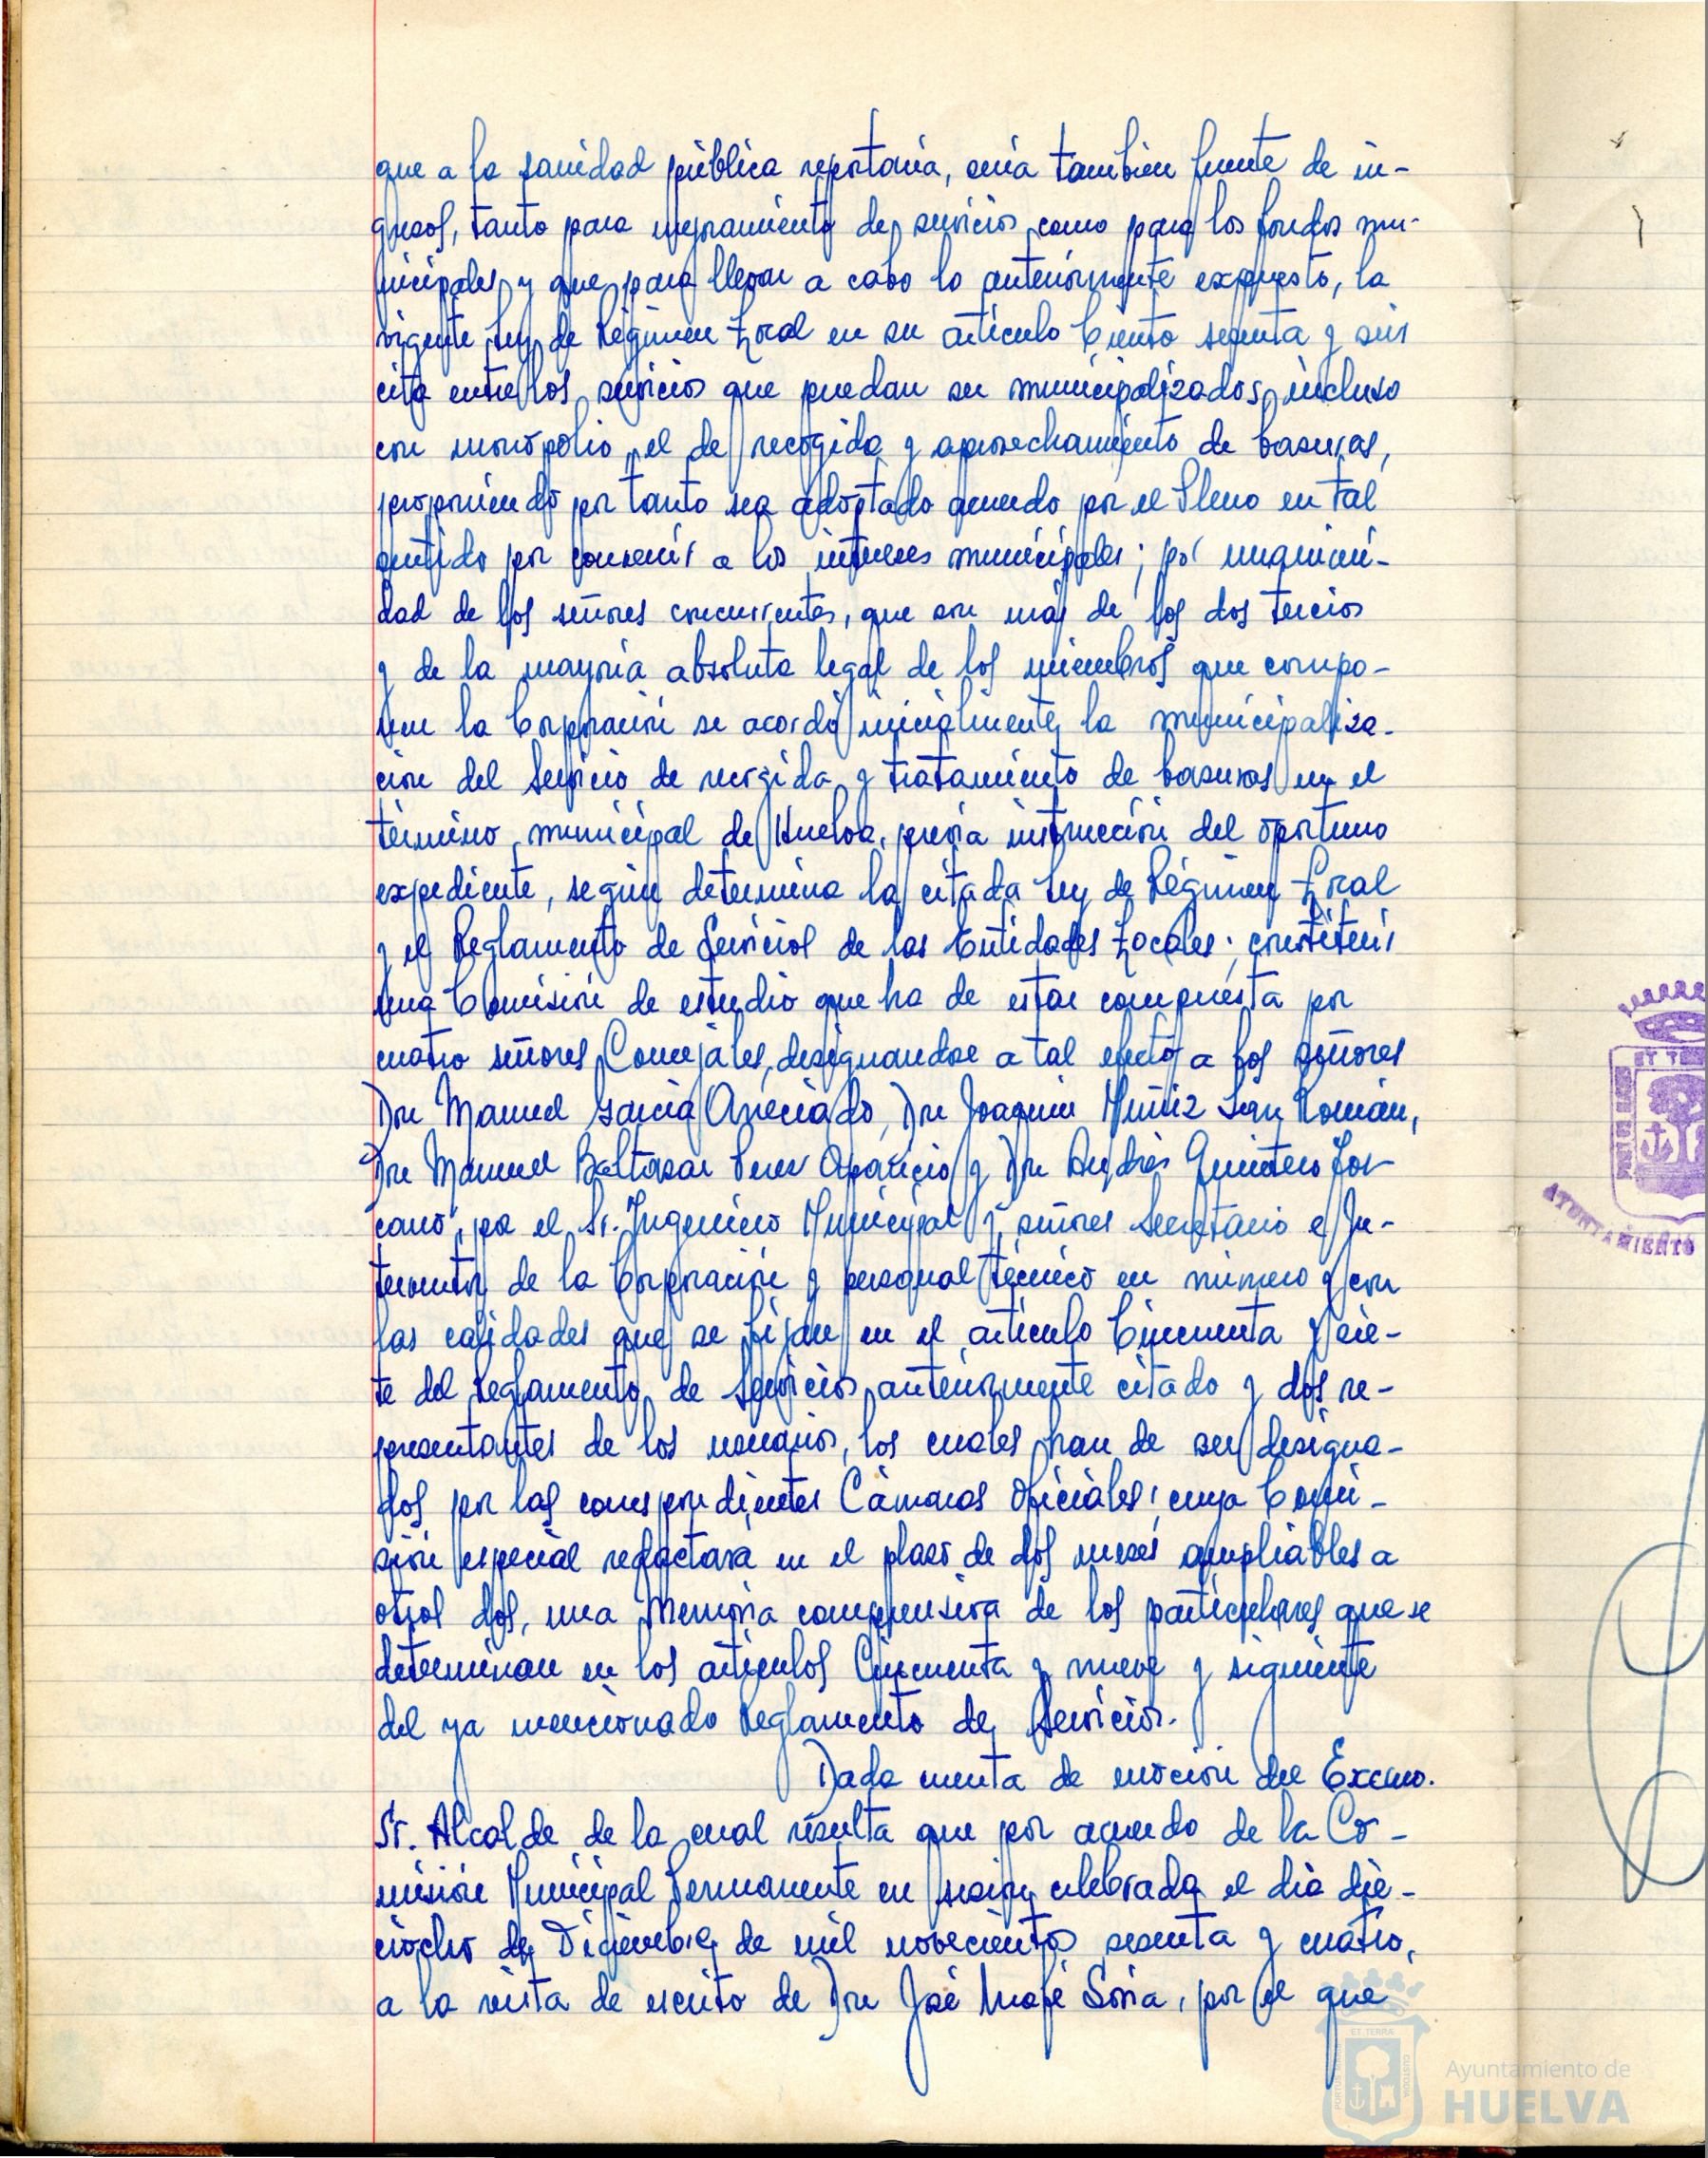 que a la sanidad pública reportaría, sería también fuente de in-
gresos, tanto para mejoramiento de servicios como para los fondos mu-
nicipales y que para llevar a cabo lo anteriormente expuesto, la
vigente Ley de Régimen Local en su artículo Ciento sesenta y seis
cita entre los servicios que puedan ser municipalizados, incluso
con monopolio, el de recogida y aprovechamiento de basuras,
proponiendo por tanto sea adoptado acuerdo por el Pleno en tal
sentido por convenir a los intereses municipales; por unanimi-
dad de los señores concurrentes, que son más de los dos tercios
y de la mayoría absoluta legal de los miembros que compo-
nen la Corporación se acordó inicialmente la municipaliza-
ción del Servicio de recogida y tratamiento de basuras en el
término municipal de Huelva, previa instrucción del oportuno
expediente, según determina la citada Ley de Régimen Local
y el Reglamento de Servicios de las Entidades Locales; constituir
una Comisión de estudio que ha de estar compuesta por
cuatro señores Concejales, designandose a tal efecto a los señores
Don Manuel García Areciado, Don Joaquín Muñiz San Román,
Don Manuel Baltasar Perez Aparicio y Don Andrés Quintero Tos-
cano, por el Sr. Ingeniero Municipal y señores Secretario e In-
terventor de la Corporación y personal técnico en número y con
las calidades que se fijan en el artículo Cincuenta y sie-
te del Reglamento de Servicios anteriormente citado y dos re-
presentantes de los usuarios, los cuales han de ser designa-
dos por las correspondientes Cámaras Oficiales; cuya Comi-
sión especial redactará en el plazo de dos meses ampliables a
otros dos, una Memoria comprensiva de los particulares que se
determinan en los artículos Cincuenta y nueve y siguiente
del ya mencionado Reglamento de Servicios.
Dada cuenta de moción del Excmo.
Sr. Alcalde de la cual resulta que por acuerdo de la Co-
misión Municipal Permanente en sesión celebrada el día die-
ciocho de Diciembre de mil novecientos sesenta y cuatro,
a la vista de escrito de Don José Mafé Soria, por el que
ET TERRA
AYUNTAMIENTO
ET TERRA
PORTUS MARIS
CUSTODIA
Ayuntamiento de
HUELVA